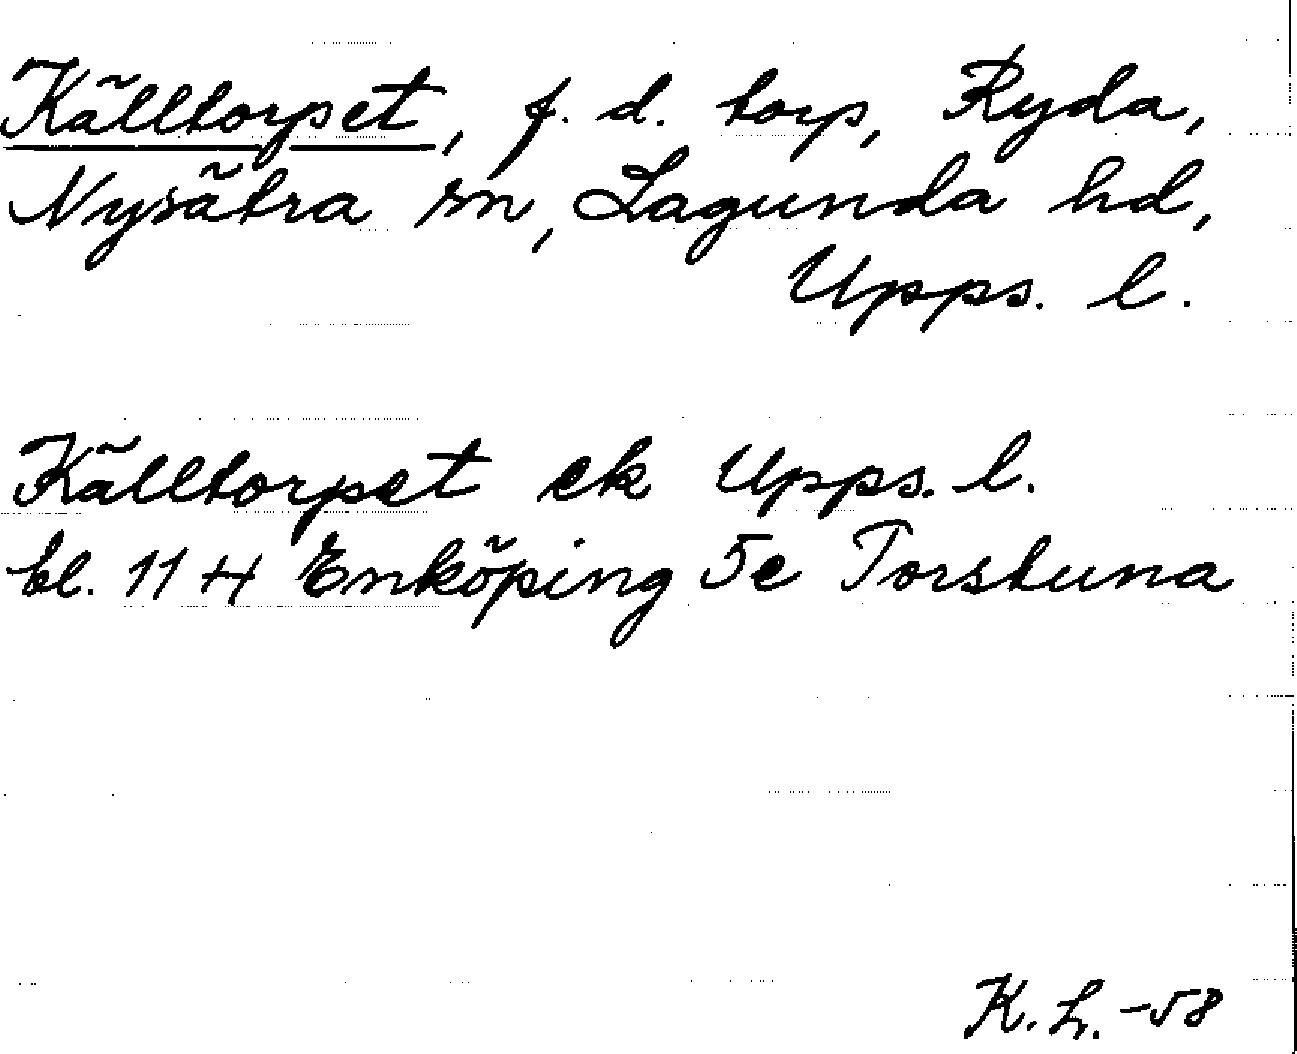 Källtorpet, f. d. torp, Ryda,
Nysätra sn, Lagunda hd,
Upps. l.
Källtorpet ek Upps. l.
bl. 11 H Enköping 5e Torstuna
K. L. -58